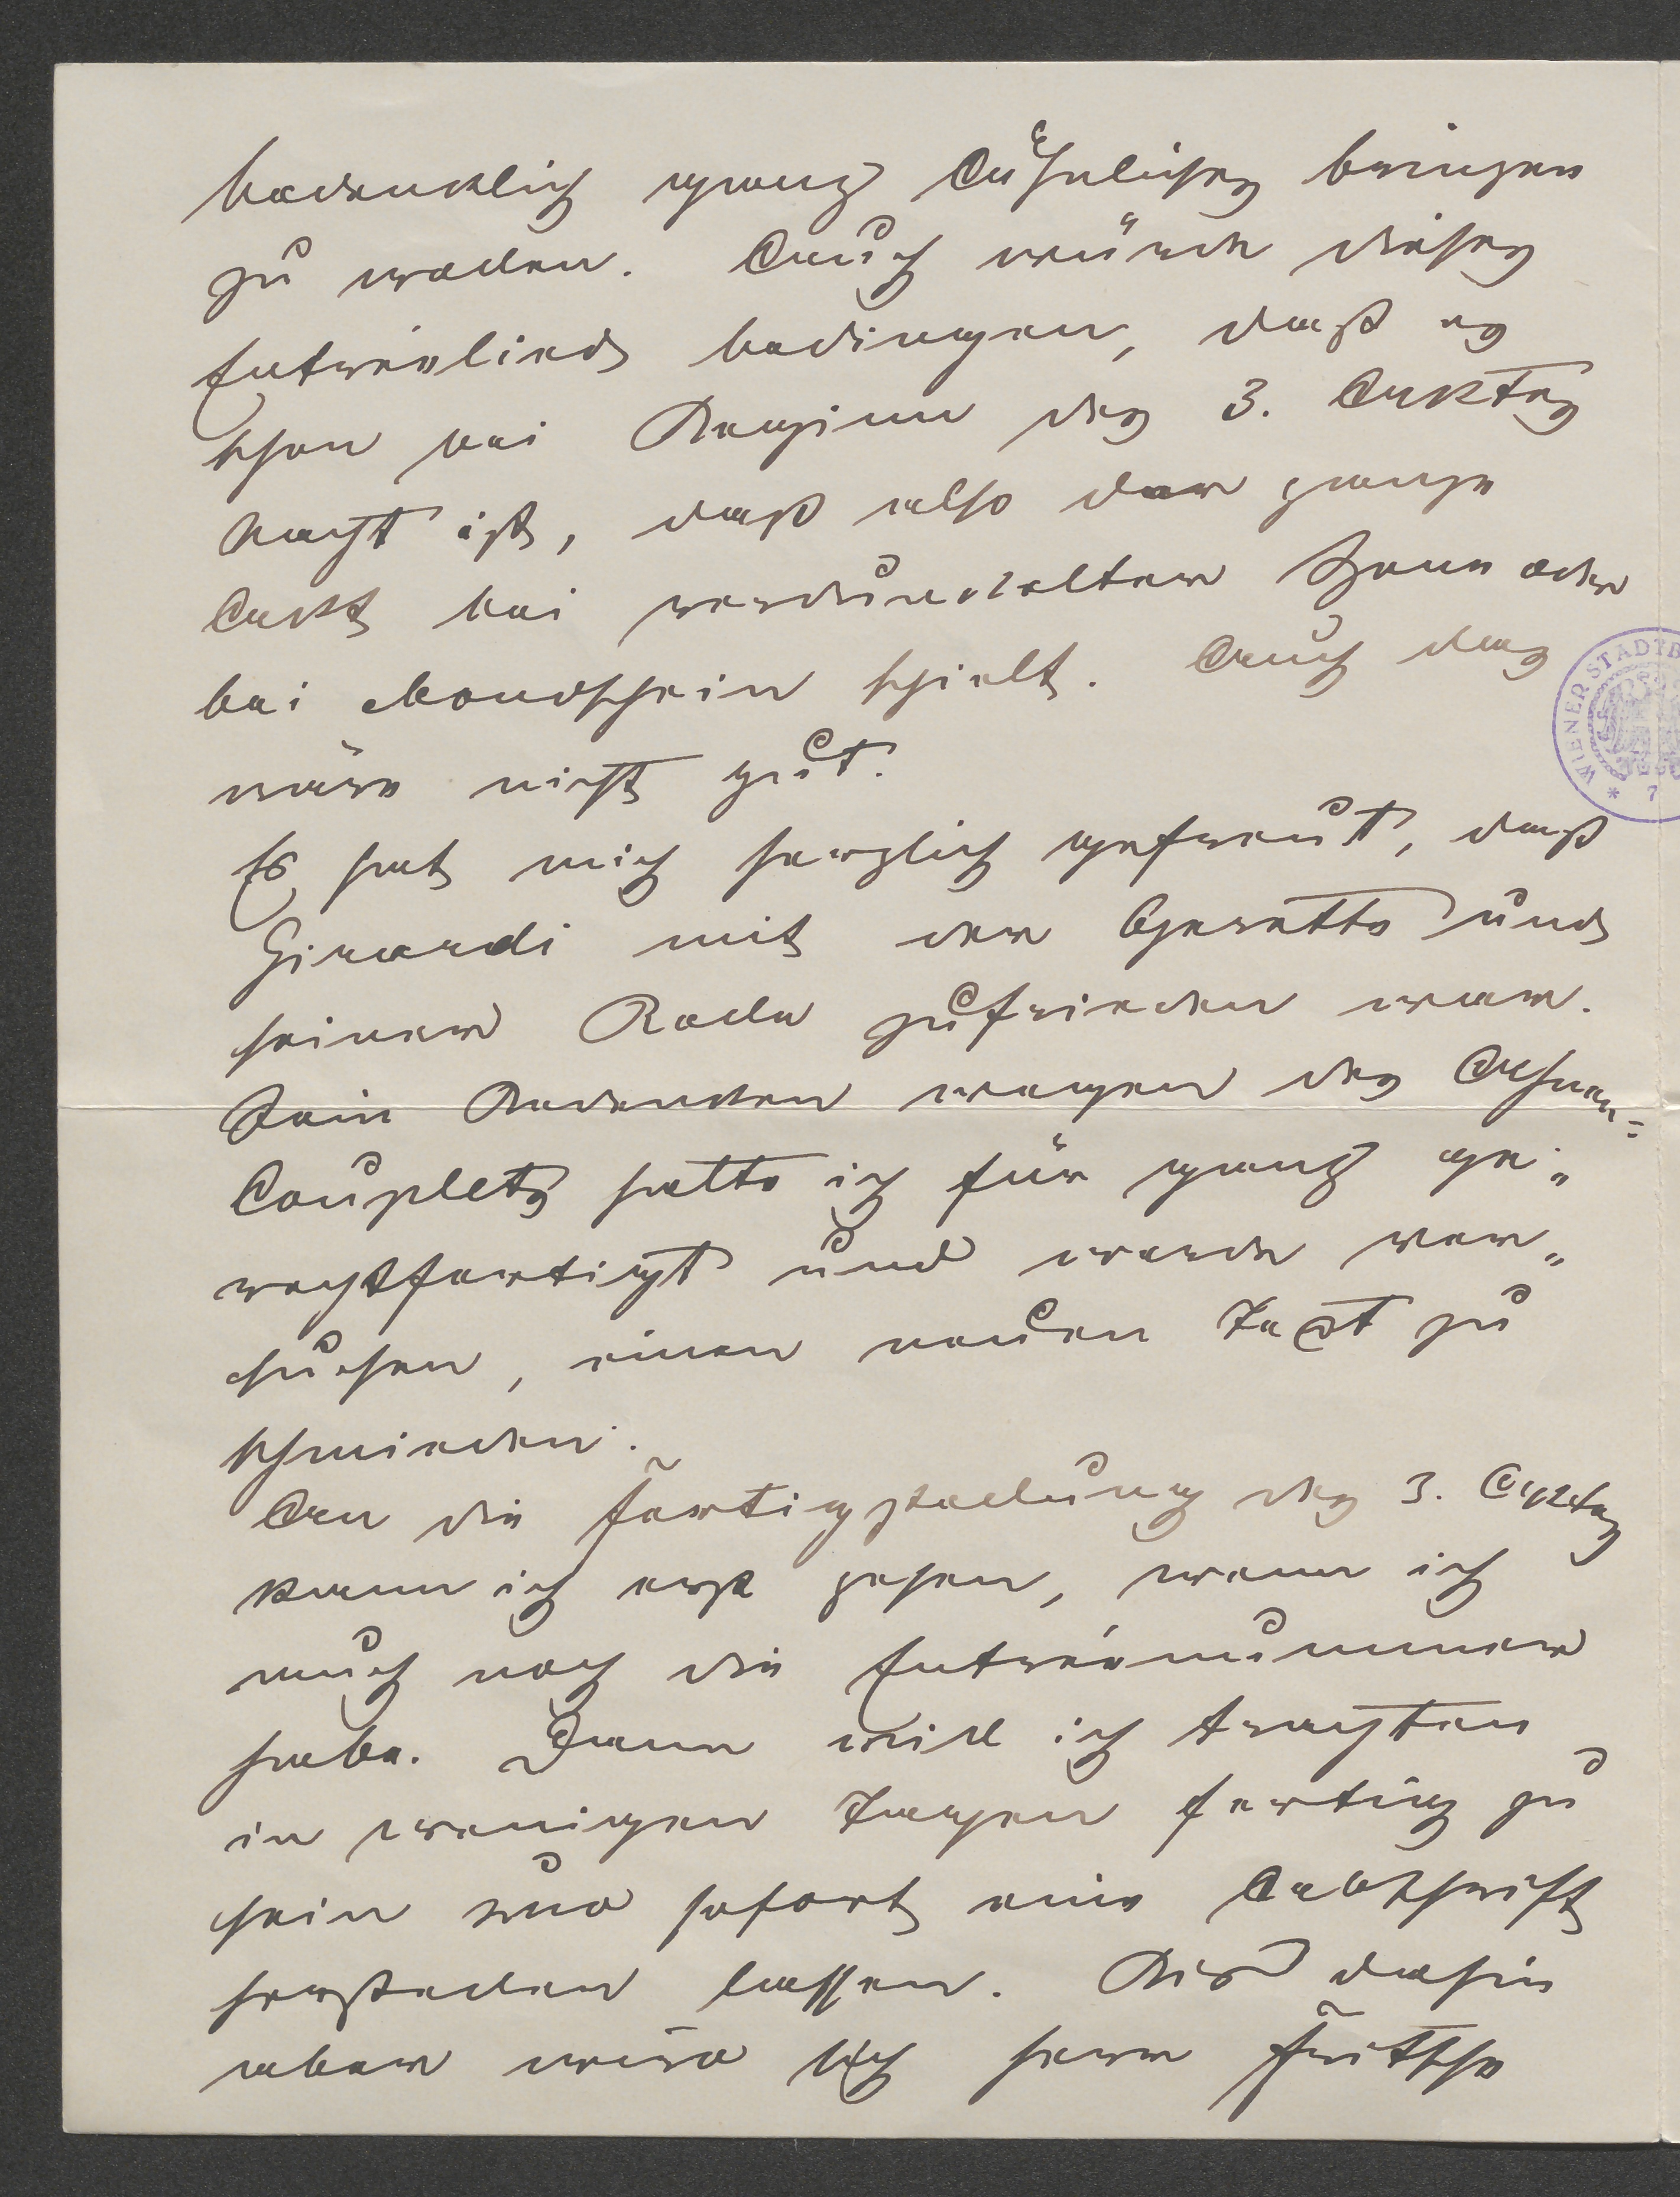 bedenklich ganz Ähnliches bringen
zu wollen. Auch würde dieses
Entréelied bedingen, daß es
schon bei Beginn des 3. Aktes
Nacht ist, daß also der ganze
Akt bei verdunkelter Szene oder
bei Mondschein spielt. Auch das
wäre nicht gut.
Es hat mich herzlich gefreut, daß
Girardi mit der Operette und
seiner Rolle zufrieden war.
Sein Bedenken wegen des Ahnen=
Couplets halte ich für ganz ge„
rechtfertigt und werde ver„
suchen, einen neuen Text zu
schmieden.
An die Fertigstellung des 3. Aktes
kann ich erst gehen, wenn ich
auch noch die Entréenummer
habe. Dann will ich trachten
in wenigen Tagen fertig zu
sein und sofort eine Abschrift
herstellen lassen. Bis dahin
aber wird sich Herr Fritsche
WIENER STADTB
* 7